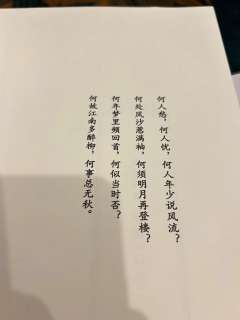 何人愁,何人忧,何人年少说风流?
何处风沙惹满袖,何须明月再登楼?
何年梦里频回首,何似当时否?
何故江南多醉柳,何事总无秋。